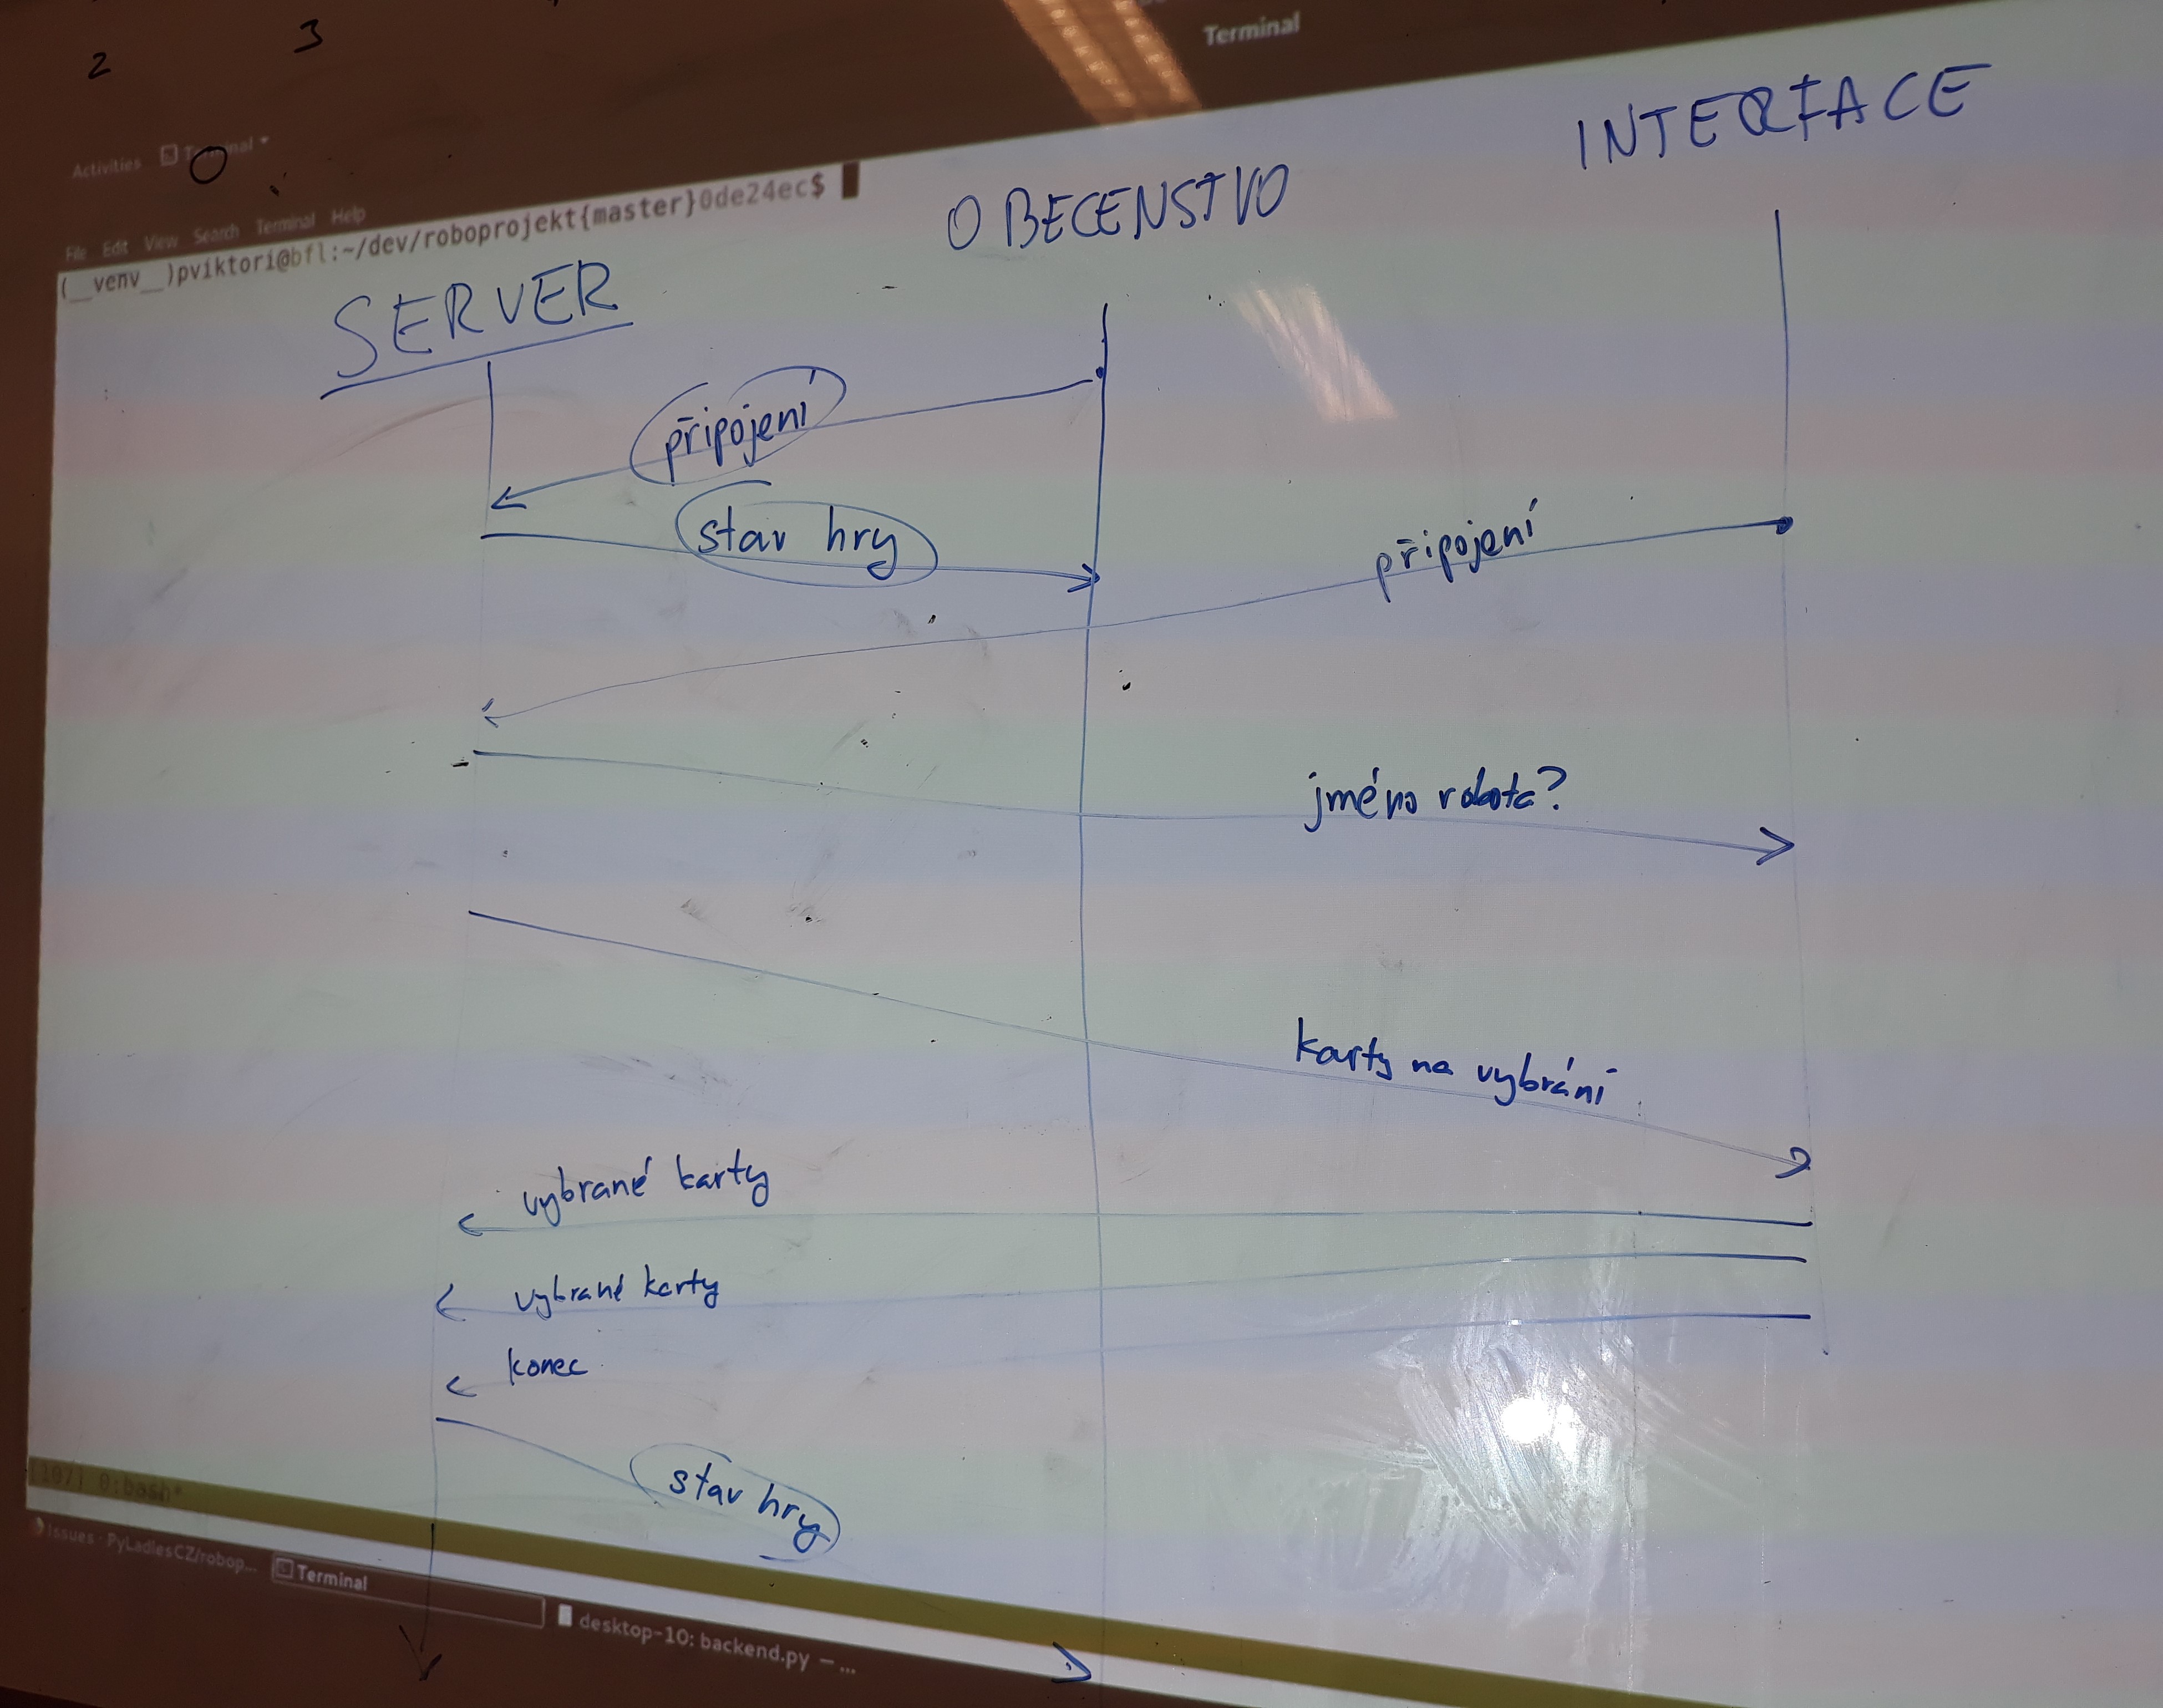 2 3
Terminal
Activities Terminal
File Edit View Search Terminal Help
(__venv__)pviktori@bfl:~/dev/roboprojekt{master}0de24ec$
INTERFACE
OBECENSTVO
SERVER
připojení
stav hry
připojení
jméno robota?
karty na vybrání
vybrané karty
vybrané karty
konec
stav hry
0:bash*
Issues · PyLadiesCZ/robop...
Terminal
desktop-10: backend.py — ...